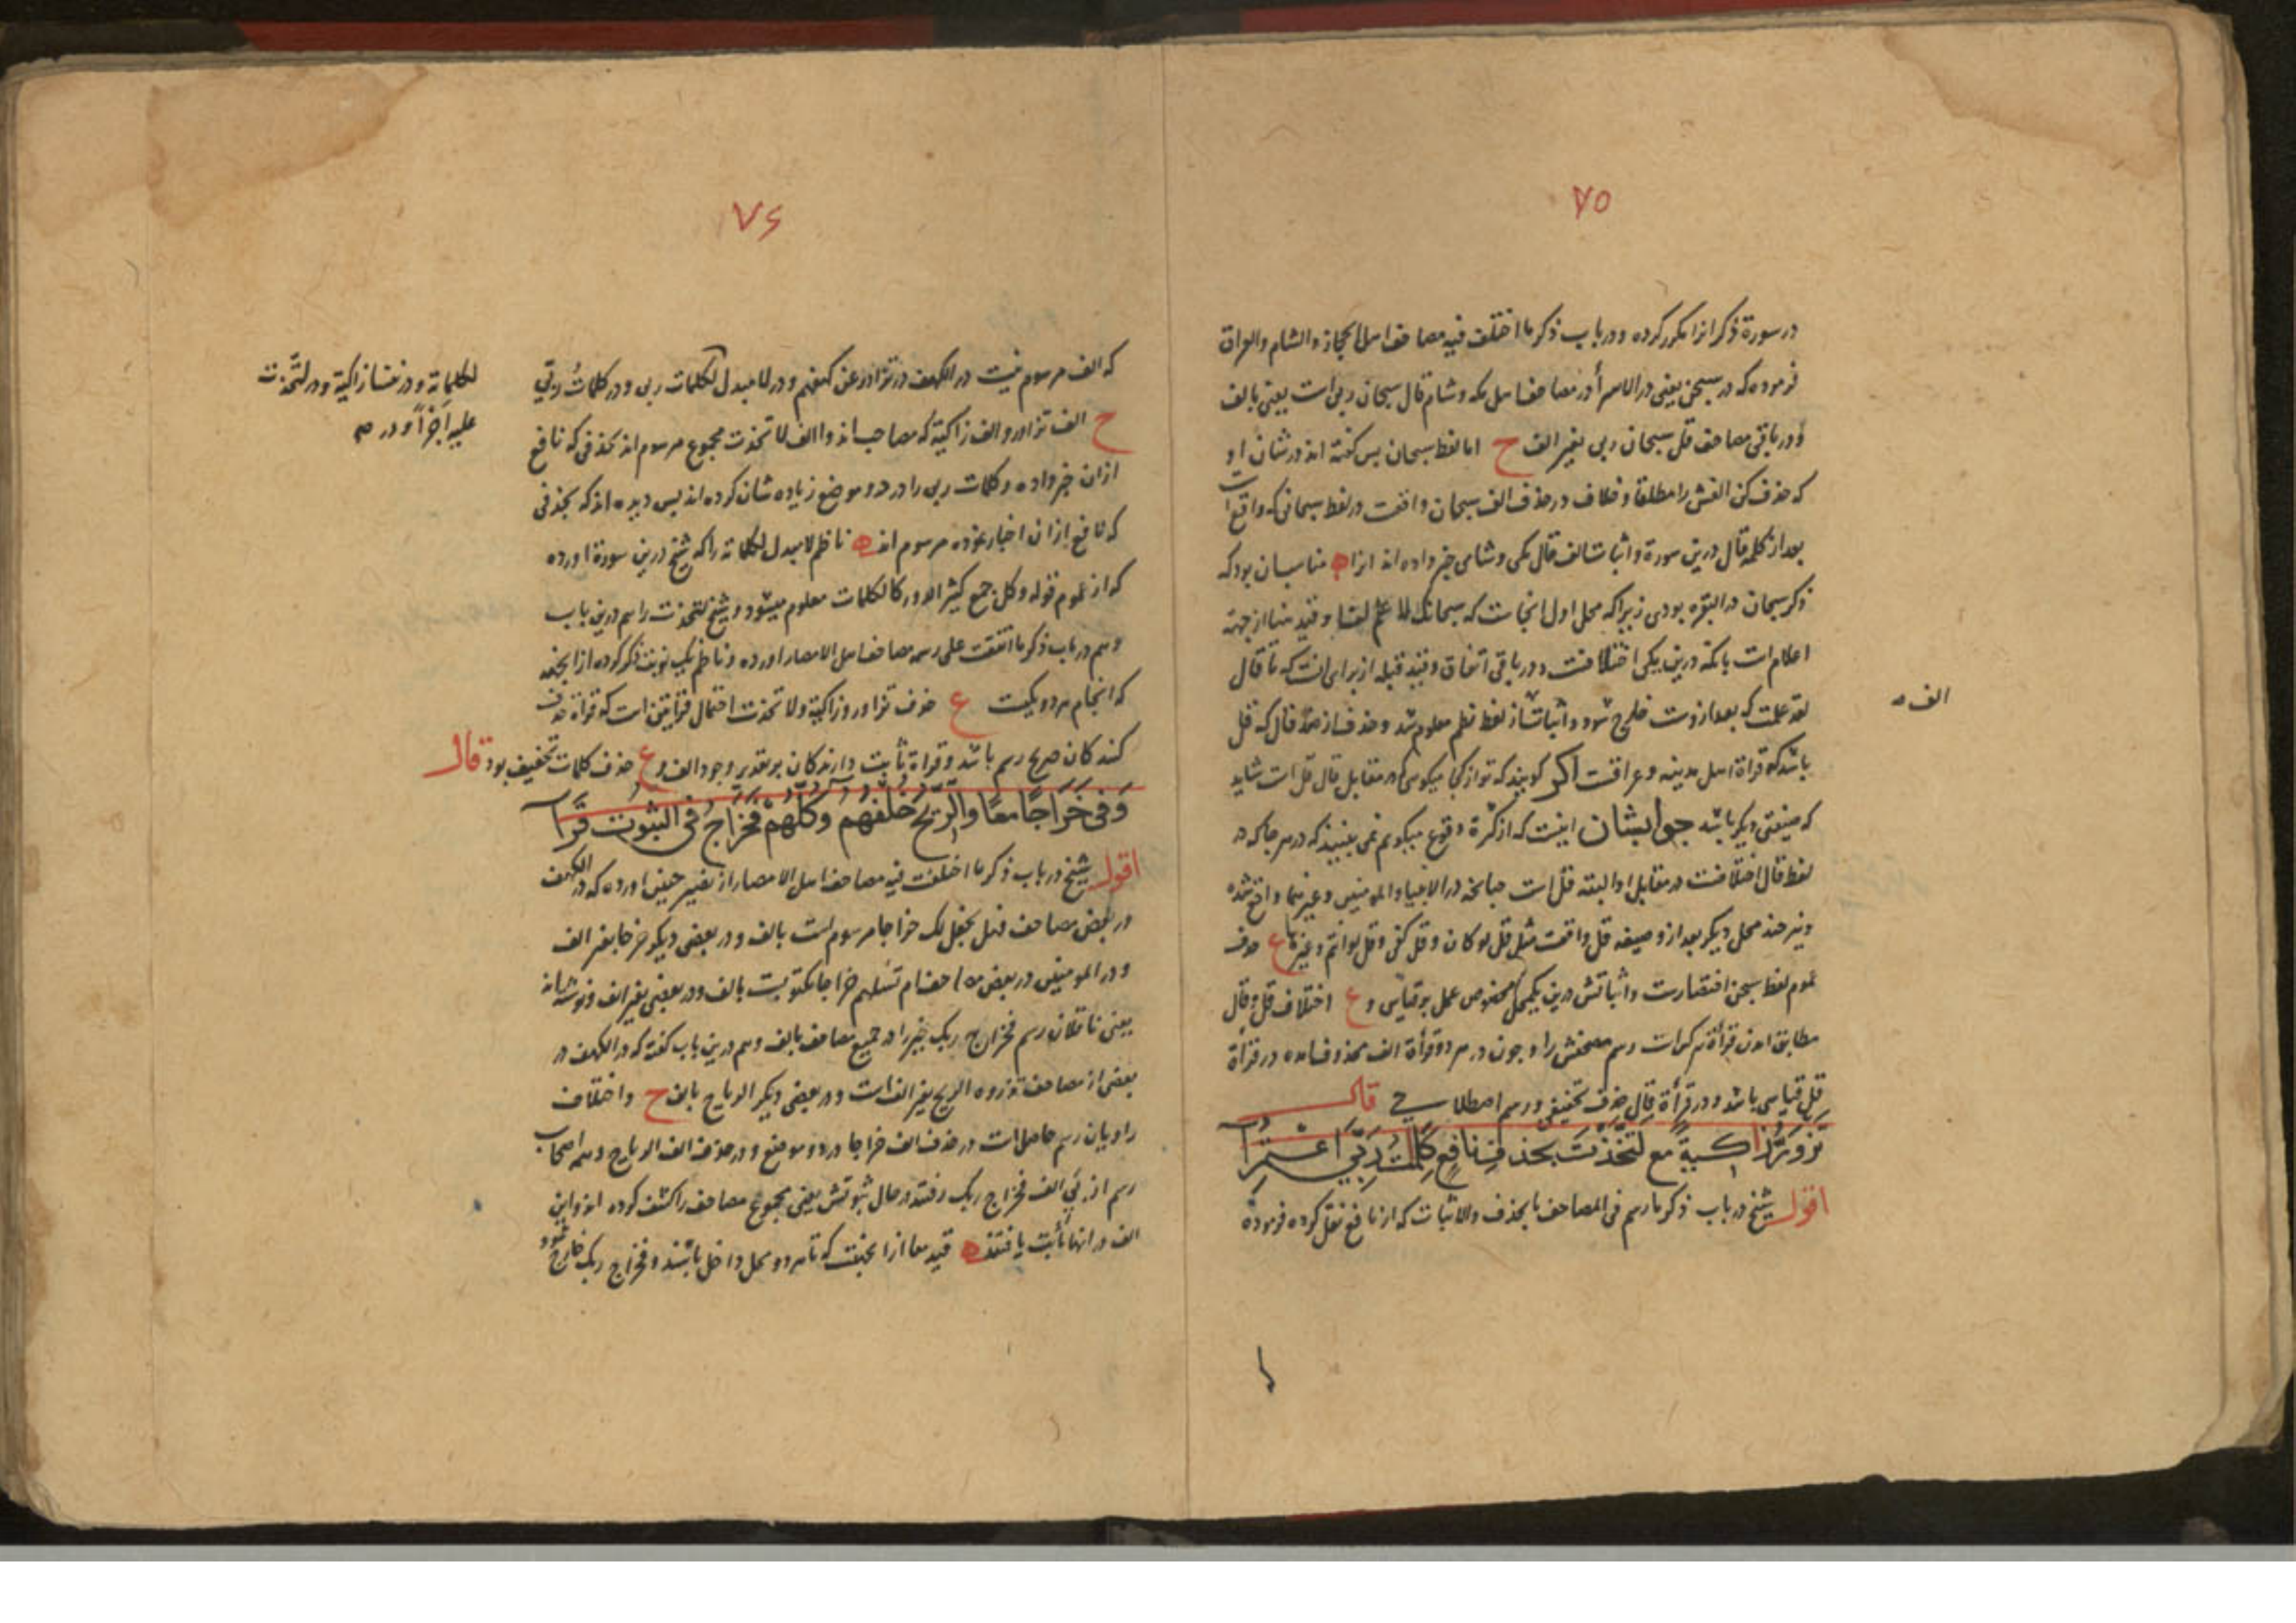 ٧٥
در سورة ذکر انرا مکرر کرده و در باب ذکر ما اختلف فیه مصاحف اهل الحجاز والشام والعراق
فرموده که در سبحن یعنی در الاسرأ در مصاحف اهل مکه و شام قال سبحان ربی است یعنی بالف
و در باقی مصاحف قل سبحان ربی بغیر الف ح اما لفظ سبحان پس گفته اند در شان او
که حذف کن الفش را مطلقا و خلاف در حذف الف سبحان واقعت در لفظ سبحانی که واقع است
بعد از کلمه قال درین سورة و اثبات الف قال مکی و شامی خبر داده اند انرا ه مناسب ان بود که
ذکر سبحان در البقره بودی زیرا که محل اول انجاست که سبحانک لا علم لنا و قید هنا از جهة
اعلام است بانکه درین یکی اختلافست و در باقی اتفاق و قید قبله از برای انست که تا قال
لقد علمت که بعد ازوست خارج شود و اثباتش از لفظ نظم معلوم شد و حذف از ضد قال که قل
الف ه
باشد که قراة اهل مدینه و عراقست اکر کویند که تو از کجا میکویی که در مقابل قال قل است شاید
که صیغتی دیکر باشد جوابشان اینست که از کثرة وقوع میکویم نمی بینید که در هر جا که در
لفظ قال اختلافست در مقابل او البته قل است چنانچه در الانبیاء و المومنین و غیرهما واقع شده
و نیز چند محل دیکر بعد ازو صیغه قل واقعت مثل قل لو کان و قل کفی و قل لو انتم و غیرها ع حذف
عموم لفظ سبحن اختصارست و اثباتش درین یکمحل مخصوص عمل بر قیاس و ع اختلاف قل و قال
مطابق امدن قرأة هر کراست رسم مصحفش را و چون در هر دو قرأة الف محذوف امده در قرأة
قل قیاسی باشد و در قرأة قال حذف تخفیفی و رسم اصطلاحی قال
تزور زاکیة مع لتخذت بحذف نافع کلمت ربی اعتمرا
اقول شیخ در باب ذکر ما رسم فی المصاحف بالحذف والاثبات که از نافع نقل کرده فرموده
٧۶
که الف مرسوم نیست در الکهف در تزاور عن کهفهم و در لا مبدل لکلمات ربی و در کلمات ربی
لکلماته و در نفسا زاکیة و در لتخذت
علیه اجرا و در ص
ح الف تزاور و الف زاکیة که مصاحب اند و الف لاتخذت مجموع مرسوم اند بحذفی که نافع
ازان خبر داده و کلمات ربی را در دو موضع زیاده شان کرده اند پس دیده اند که بحذفی
که نافع ازان اخبار نموده مرسوم اند ه ناظم لا مبدل لکلماته را که شیخ درین سورة اورده
که از عموم قوله و کل جمع کثیر الدور کالکلمات معلوم میشود و شیخ لتخذت را هم درین باب
و هم در باب ذکر ما اتفقت علی رسمه مصاحف اهل الامصار اورده و ناظم یک نوبت ذکر کرده از انجهة
که انجام هر دو یکیست ع حذف تزاور و زاکیة و لاتخذت احتمال قراتین است که قراة حذف
کنندکان صریح رسم باشد و قراة ثابت دارندکان بر تقدیر وجود الف و ع حذف کلمات تخفیف بود قال
وَفی خَرَاجًا معًا والرِّیح خُلْفُهُم وکُلُّهُمْ فَخَرَاجُ فی الثبوت قَرَا
اقول شیخ در باب ذکر ما اختلفت فیه مصاحف اهل الامصار از تفسیر چنین اورده که در الکهف
در بعض مصاحف فهل نجعل لک خراجا مرسوم است بالف و در بعضی دیکر خرجا بغیر الف
و در المومنین در بعض مصاحف ام تسلهم خراجا مکتوبست بالف و در بعضی بغیر الف و نوشته اند
یعنی ناقلان رسم فخراج ربک خیر را در جمیع مصاحف بالف و هم درین باب کفته که در الکهف در
بعضی از مصاحف تذروه الریح بغیر الف است و در بعضی دیکر الریاح بالف ح و اختلاف
راویان رسم حاصل است در حذف الف خراجا در دو موضع و در حذف الف الریاح و همه اصحاب
رسم از پی الف فخراج ربک رفتند در حال ثبوتش یعنی مجموع مصاحف را کشف کرده اند و این
الف در انها ثابت یافتند ه قید معا از انجهتست که تا هر دو محل داخل باشند و فخراج ربک خارج شود